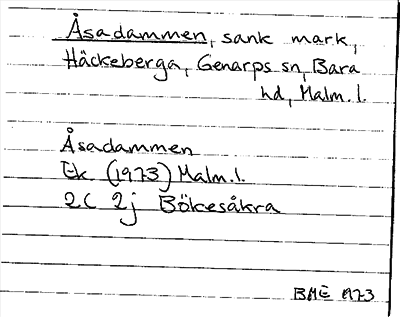 Åsadammen, sank mark,
Häckeberga, Genarps sn, Bara
hd, Malm. l.
Åsadammen
Ek (1973) Malm. l.
2C 2j Bökesåkra
BME 1973